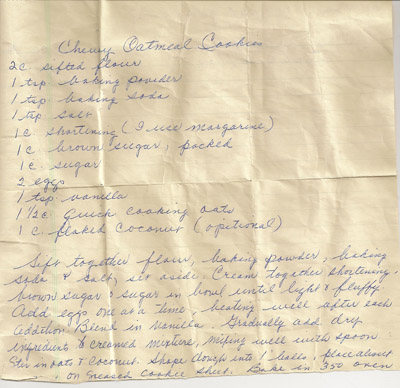 Chewy Oatmeal Cookies
2c sifted flour
1 tsp baking powder
1 tsp baking soda
1 tsp salt
1c shortening (I use margarine)
1c. brown sugar, packed
1c. sugar
2 eggs
1 tsp. vanilla
1 1/2c. quick cooking oats
1 c. flaked coconut (optional)
Sift together flour, baking powder, baking
soda & salt, set aside. Cream together shortening,
brown sugar & sugar in bowl until light & fluffy.
Add eggs one at a time, beating well after each
addition. Blend in vanilla. Gradually add dry
ingredients to creamed mixture, mixing well with spoon.
Stir in oats & coconut. Shape dough into 1" balls, place about
on greased cookie sheet. Bake in 350 oven